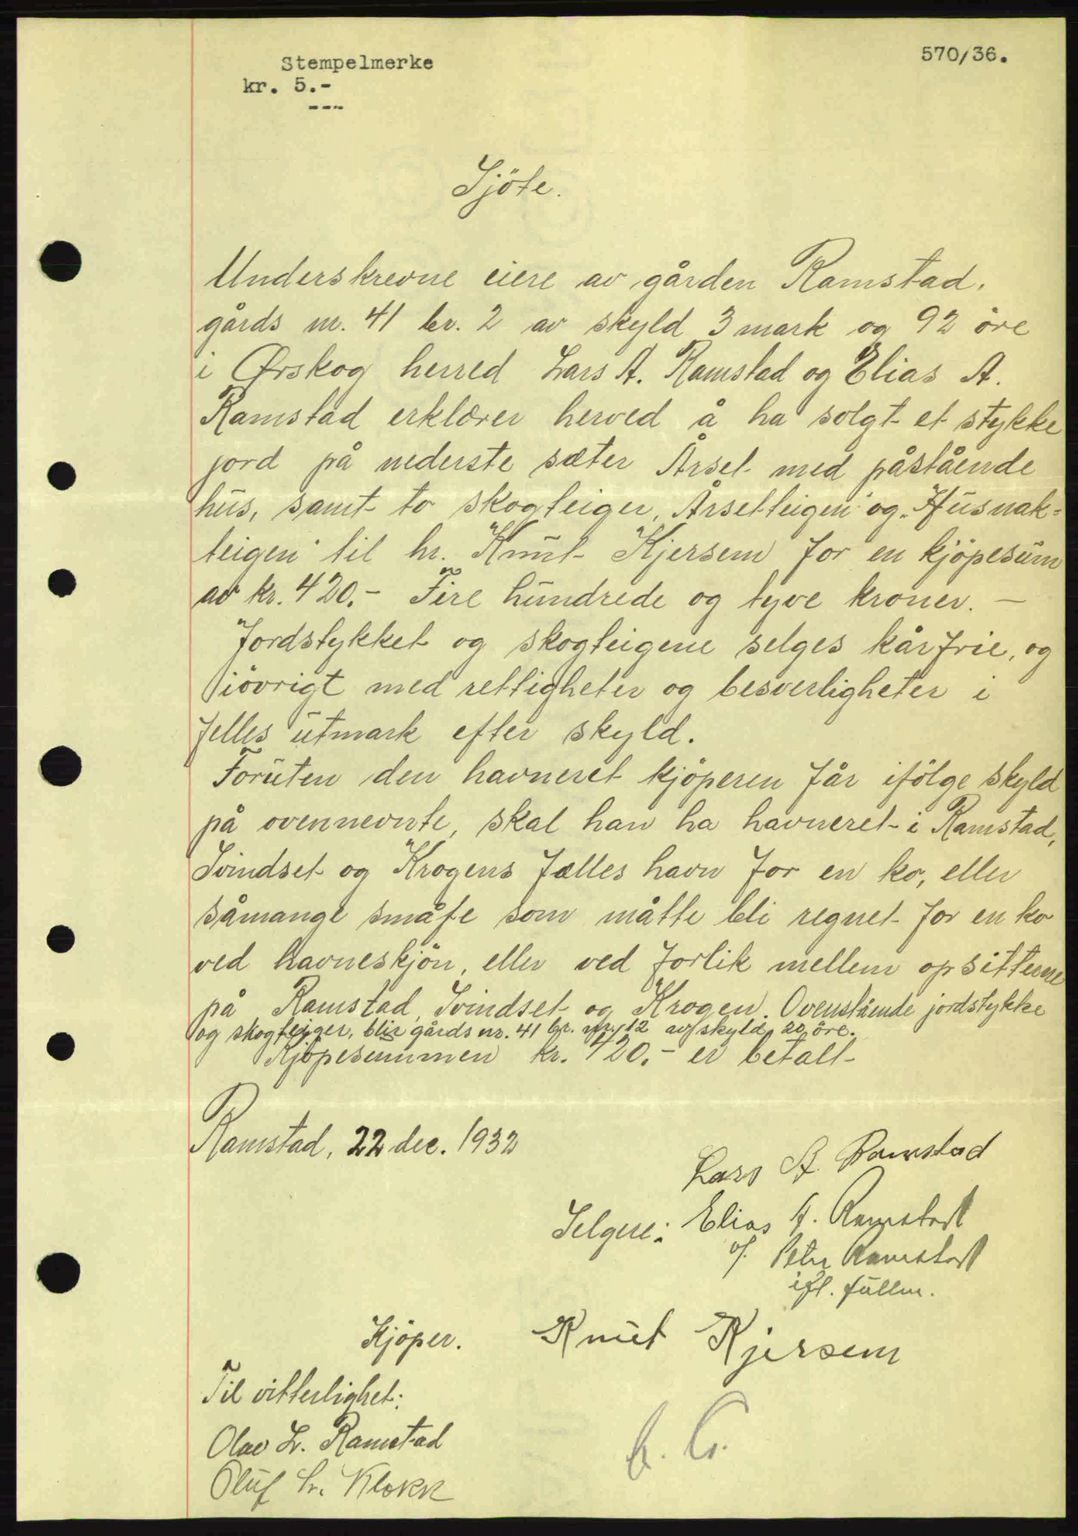 Stempelmerke
kr. 5.-
---
570/36.
Sjöte.
Underskrevne eiere av gården Ramstad,
gårds nr. 41 br. 2 av skyld 3 mark og 92 öre
i Ørskog herred Lars A. Ramstad og Elias A.
Ramstad erklærer herved å ha solgt et stykke
jord på nederste sæter Årset med påstående
hus, samt to skogteiger, "Årsetteigen" og "Husnak-
teigen" til hr. Knut Kjersem for en kjöpesum
av kr. 420.- Fire hundrede og tyve kroner. —
Jordstykket og skogteigene selges kårfrie, og
iövrigt med rettigheter og besverligheter i
felles utmark efter skyld.
Foruten den havneret kjöperen får ifölge skyld
på ovennevnte, skal han ha havneret i Ramstad,
Svindset og Krogens fælles havn for en ko, eller
såmange småfe som måtte bli regnet for en ko
ved havneskjön, eller ved forlik mellem opsitterne
på Ramstad, Svindset og Krogen. Ovenstående jordstykke
og skogteiger, blir gårds nr. 41 br. nr. 12 av skyld 20 öre.
Kjöpesummen kr. 420.- er betalt
Ramstad, 22 dec. 1932
Lars A. Ramstad
Selgere: Elias A. Ramstad
v/. Petr Ramstad
ifl. fullm.
Kjöper. Knut Kjersem
Til vitterlighet:
Olav L. Ramstad
Oluf Kr. Klokk